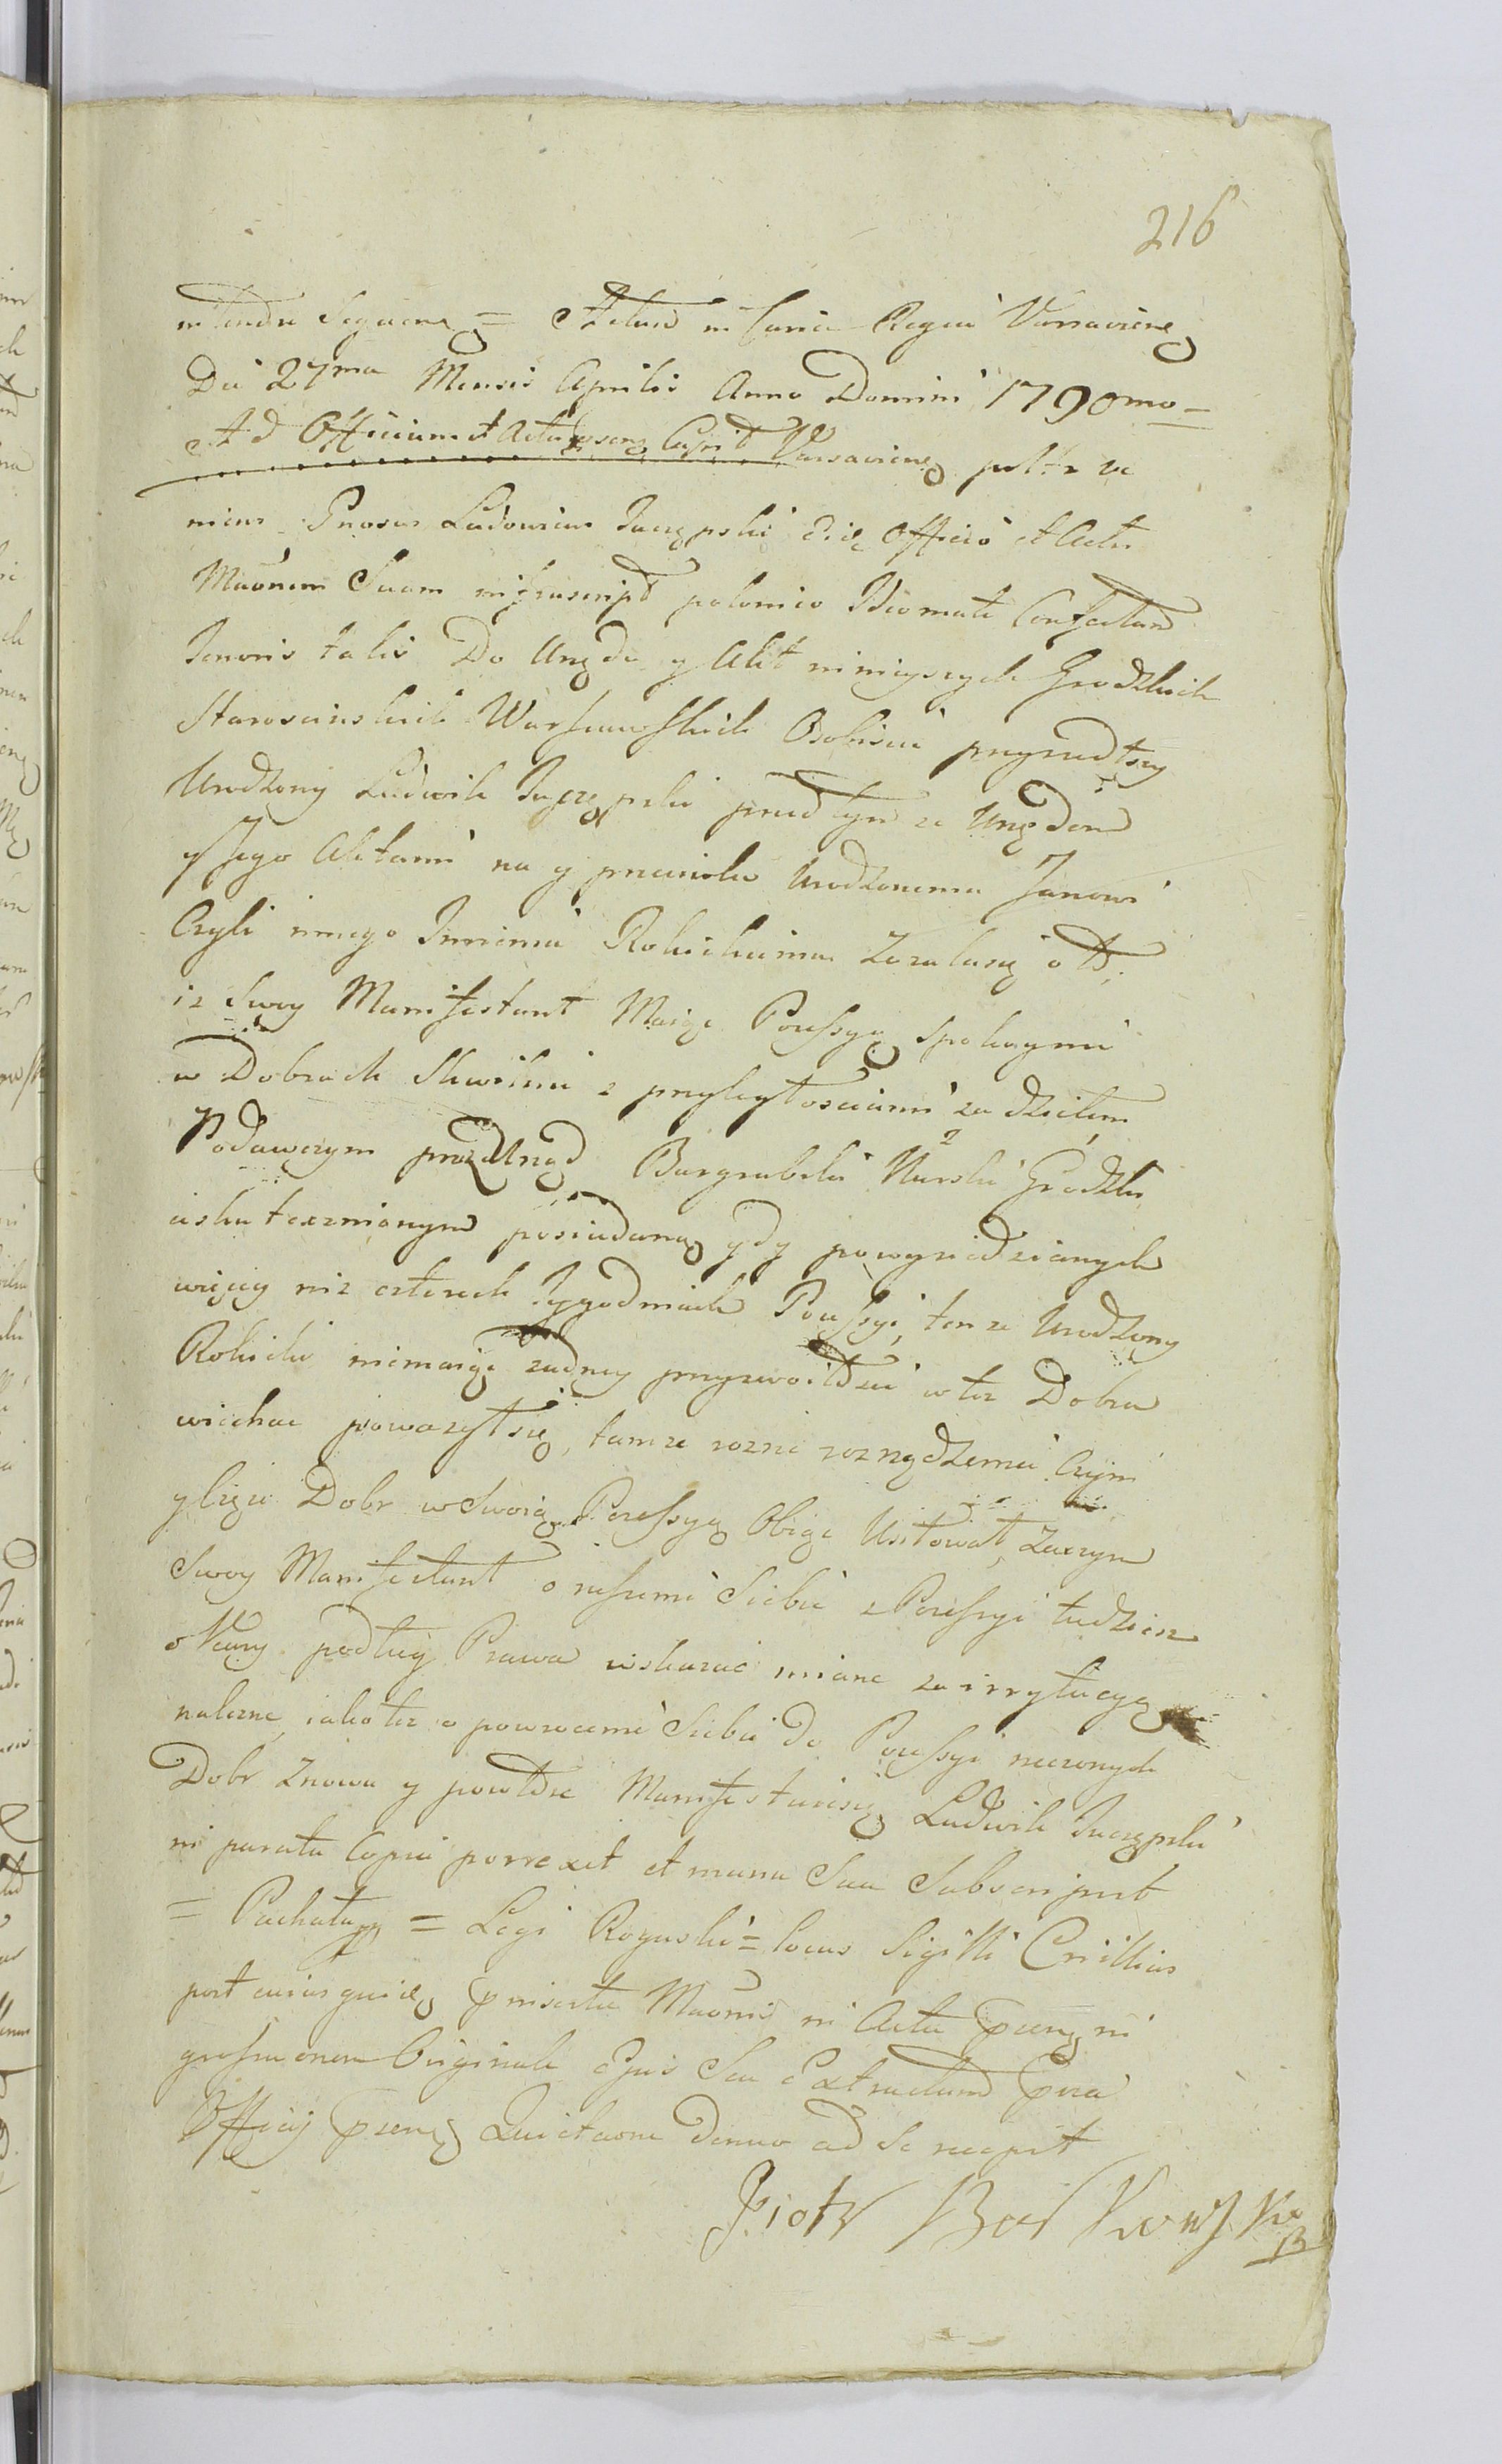 216
in tenore Sequenq = Actum in Curia Regia Varsavienq
Die 27ma Mensis Aprilis Anno Domini 1790mo =
Ad Officium et Acta psenq Castr Varsavienq psltr ve
niens Gnosus Ludovicus Jaczępski Eidq Officio et Actis
Maonem Suam infrascript polonico Idiomate Confectam
Tenoris talis Do Urzędu y Akt ninieyszych Grodzkich
Starościnskich Warszawskich Osobiscie przyszedłszy
Urodzony Ludwik Jaczępski przed tym ze Urzędem
y Jego Aktami na y przeciwko Urodzonemu Janowi
Czyli innego Imienia Rokickiemu Zezalasię o to,
iz Swey Manifestant Maiąc Possesyą spokoyni
w Dobrach Skwilni z przyległosciami za dzielem
Podawczym przez Urząd Burgrabski Nurski Grodzki
uskutecznionym posiadaną gdy po wysiedzianych
więcey niz czterech Tygodniach Possessyi, tenze Urodzony
Rokicki niemaiąc zadney przyzwoitosci w tez Dobra
wiechac powazył się, tamze rozne rozrządzenia Czyni
y lizie Dobr w Swoią Possesyą Obiąc Usitował, Zaczym
Swoy Manifestant o ruszenie Siebie z Possesyi tudziesz
o Kary podług Prawa wskazac miane za irrytucyą
nalezne, iako tez o powrocenie Siebie do Possessyi rzeczonych
Dobr Znowu y powtore Manifestuiesię Ludwik Jaczępski
in parata Copia porrexit et manu Sua Subscripsit
= Pachatupp = Legi Roguski = locus Sigilli Crillius
post cuius quidq pnisertu Maonis in Acta psenq in
grossaonem Originale Ejus Seu Extractum psra
Officij psenq Quietaone denuo ad Se recepit
Piotr Borkowski